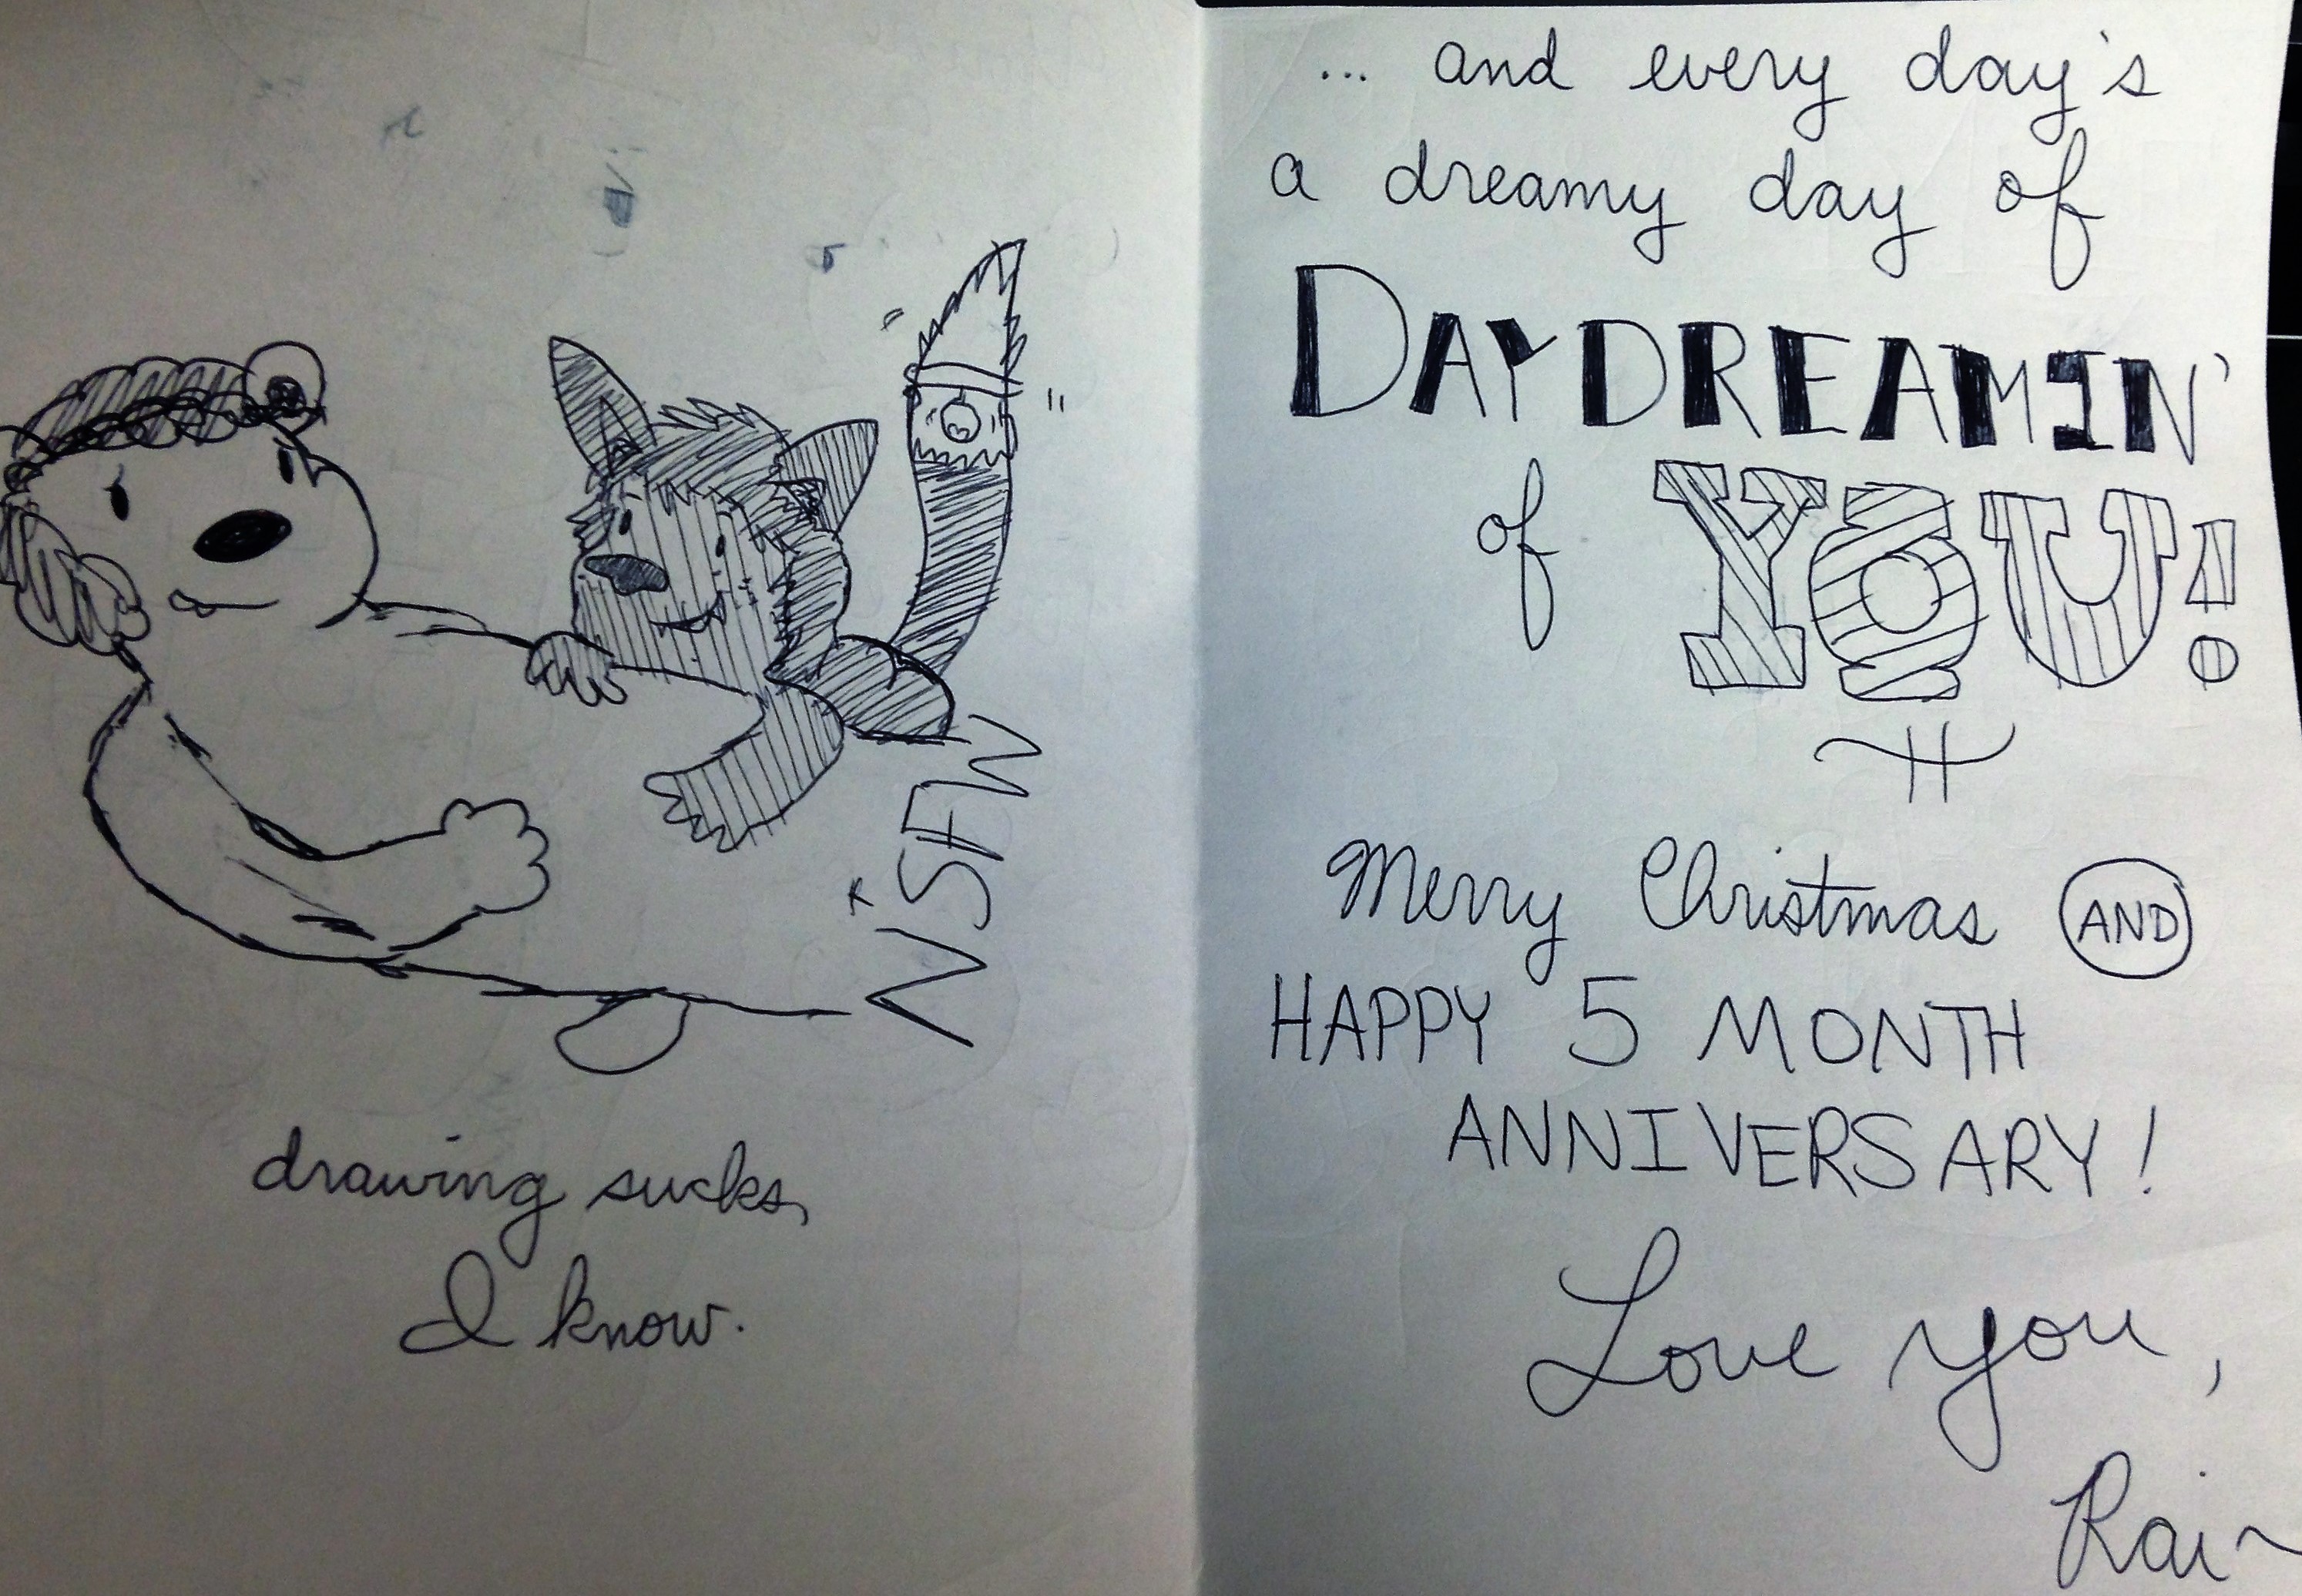 NSFW
drawing sucks,
I know.
... and every day's
a dreamy day of
DAYDREAMIN'
of YOU!
Merry Christmas AND
HAPPY 5 MONTH
ANNIVERSARY!
Love you,
Rain